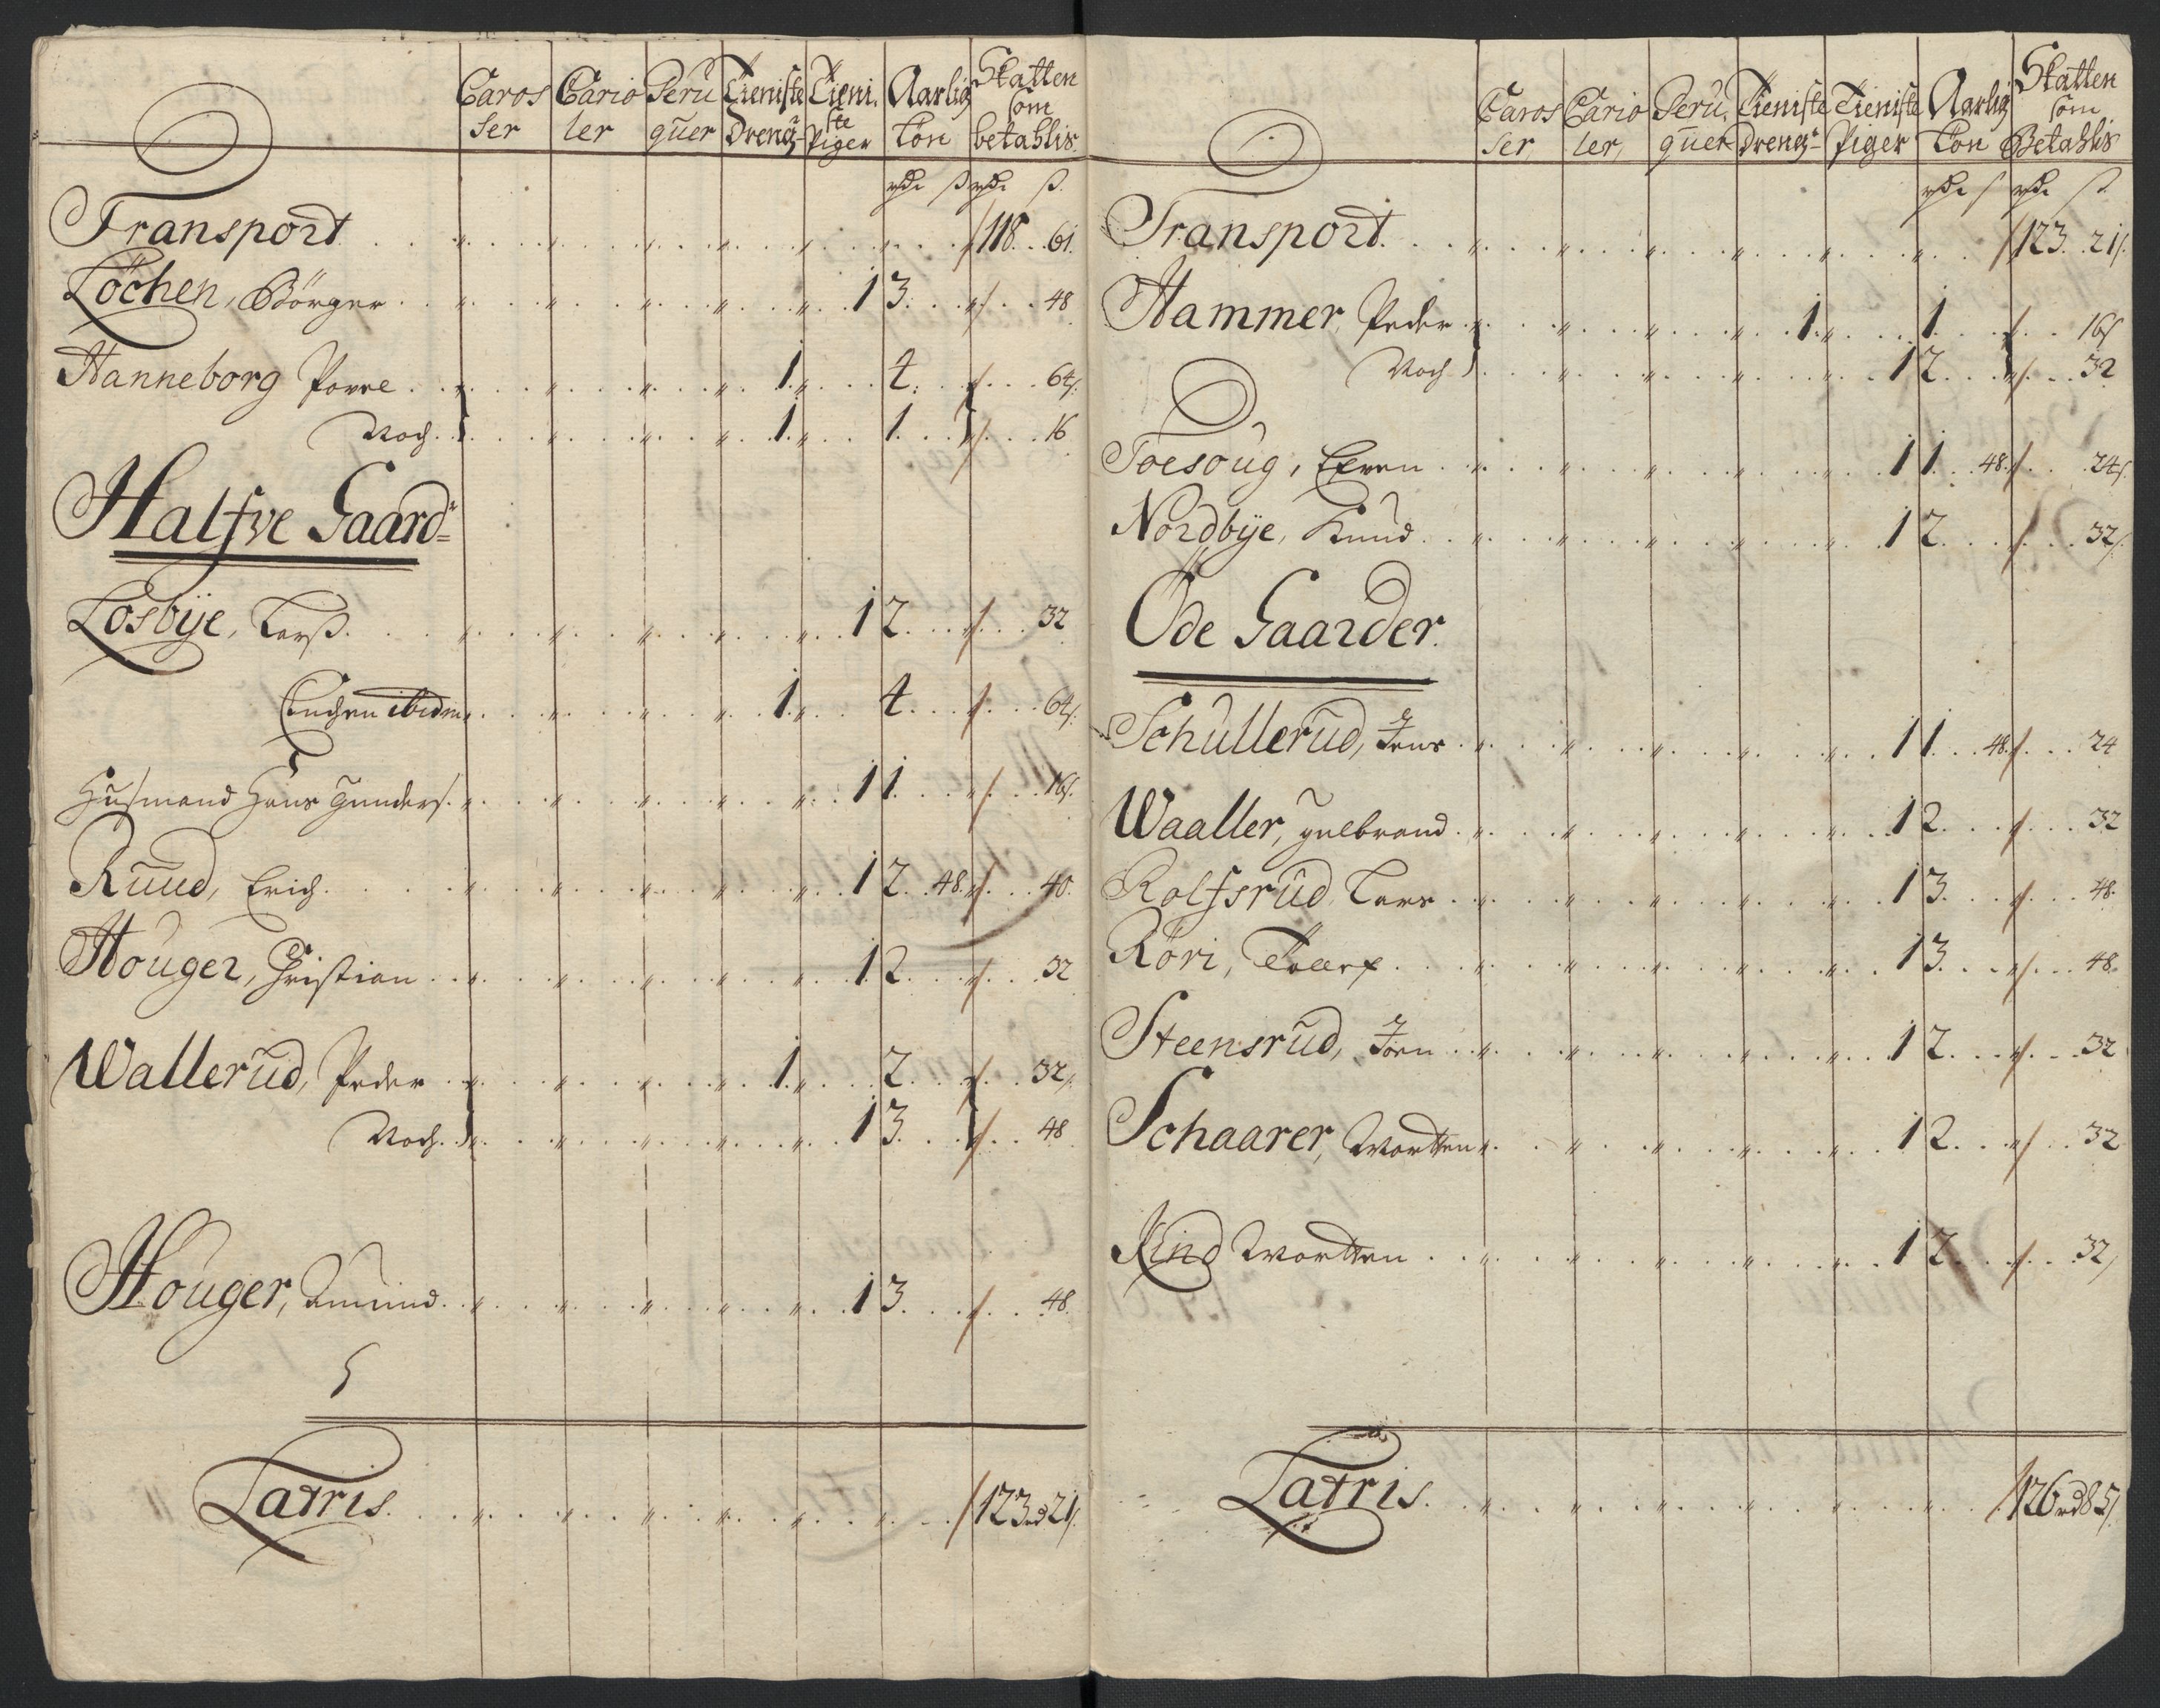 Caros Cario Peru Tieniste Tieni. Aarlig Skatten
ser ler quer Dreng- ste Piger Lön som betahlis.
rdr ß rdr ß
Transport 118 61.
Löchen, Börger 1 3 48
Hanneborg Povel 1 4 64
Noch 1 1 16
Halfve Gaard=
Losbÿe, Larß 1 2 32
Enchen ibidm 1 4 64
Husmand Hans Gunders. 1 1 16
Ruud, Erich 1 2 48 40.
Houger, Christian 1 2 32
Wallerud, Peder 1 2 32
Noch 1 3 48
Houger, Amund 1 3 48.
Latris 123 rd 21
Caros Cario Peru. Tieniste Tieniste Aarlig Skatten
ser, ler, quer Dreng- Piger Lön som Betahlis
rdr ß rdr ß
Transport 123 21
Hammer, Peder 1 1 16
Noch 1 2 32
Toesoug, Even 1 1 48 24
Nordbÿe, Knud 1 2 32
Öde Gaarder.
Schullerud, Jens 1 1 48 24
Waaller, gulbrand 1 2 32
Rolfsrud Lars 1 3 48.
Röri, 1 3 48.
Steensrud, Jörn 1 2 32
Schaarer, Mortten 1 2 32
Kind Mortten 1 2 32
Latris. 126 rd 85